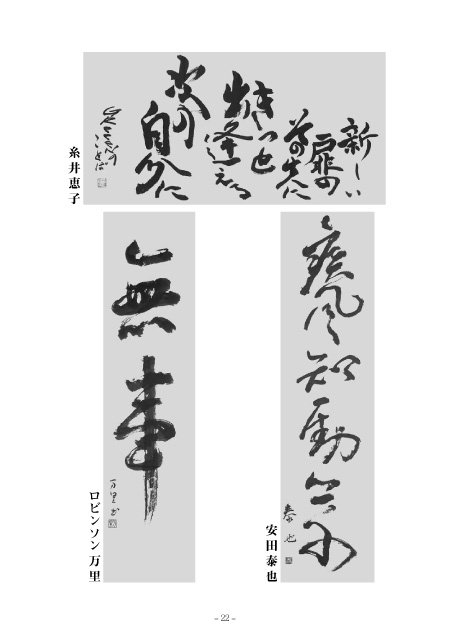 新しい
扉の
その先に
逢える
次の
自分に
糸井恵子
疾風知勁草
泰也
安田泰也
無事
万里書
ロビンソン万里
－22－